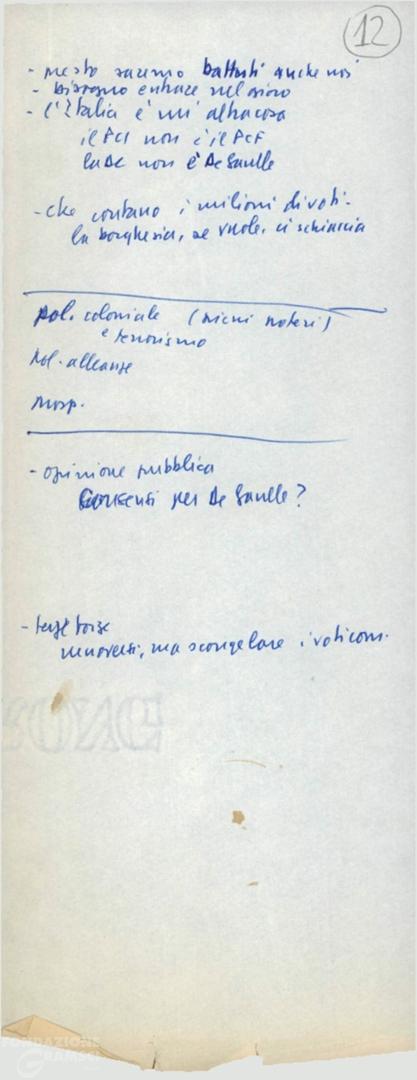 12
- presto saremo battuti anche noi
- bisogna entrare nel gioco
- l'Italia è un'altra cosa
il PCI non è il PCF
la DC non è De Gaulle
- che contano i milioni di voti -
la borghesia, se vuole, ci schiaccia
pol. coloniale (pieni poteri)
e terrorismo
Pol. alleanze
Prosp.
- opinione pubblica
Consensi per De Gaulle?
- terze forze
muoversi, ma scongelare i voti com.
FONDAZIONE
GRAMSCI